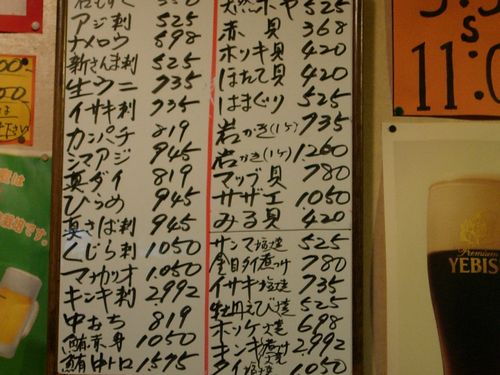 アジ刺 525
ナメロウ 898
新さんま刺 525
生ウニ 735
イサキ刺 735
カンパチ 819
シマアジ 945
真ダイ 819
ひらめ 945
真さば刺 945
くじら刺 1050
マナガツオ 1.050
キンキ刺 2,992
中おち 819
鮪赤身 1050
鮪中トロ 1,575
天然ホヤ 525
赤貝 368
ホッキ貝 420
ほたて貝 420
はまぐり 525
岩かき(1ヶ) 735
岩かき(1ヶ) 1,260
マツブ貝 780
サザエ 1050
みる貝 420
サンマ塩焼 525
金目ダイ煮つけ 780
イサキ塩焼 735
牡丹えび焼 525
ホッケ焼 698
キンキ煮付 2,992
タイ塩焼 1050
S:
11:0
Premium
YEBIS
です。